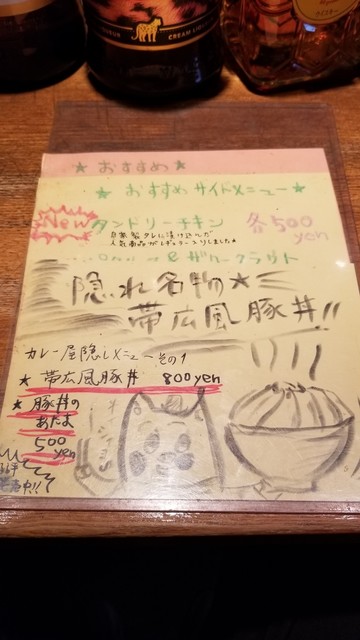 CREAM LIQUEUR
★ おすすめ ★
★ おすすめサイドメニュー ★
New タンドリーチキン 各500yen
自家製タレに漬け込んだ
人気商品がレギュラー入りしました★
隠れ名物★
帯広風豚丼!!
カレー屋隠しメニューその1
★ 帯広風豚丼 800yen
★ 豚丼の
あたま
500
yen